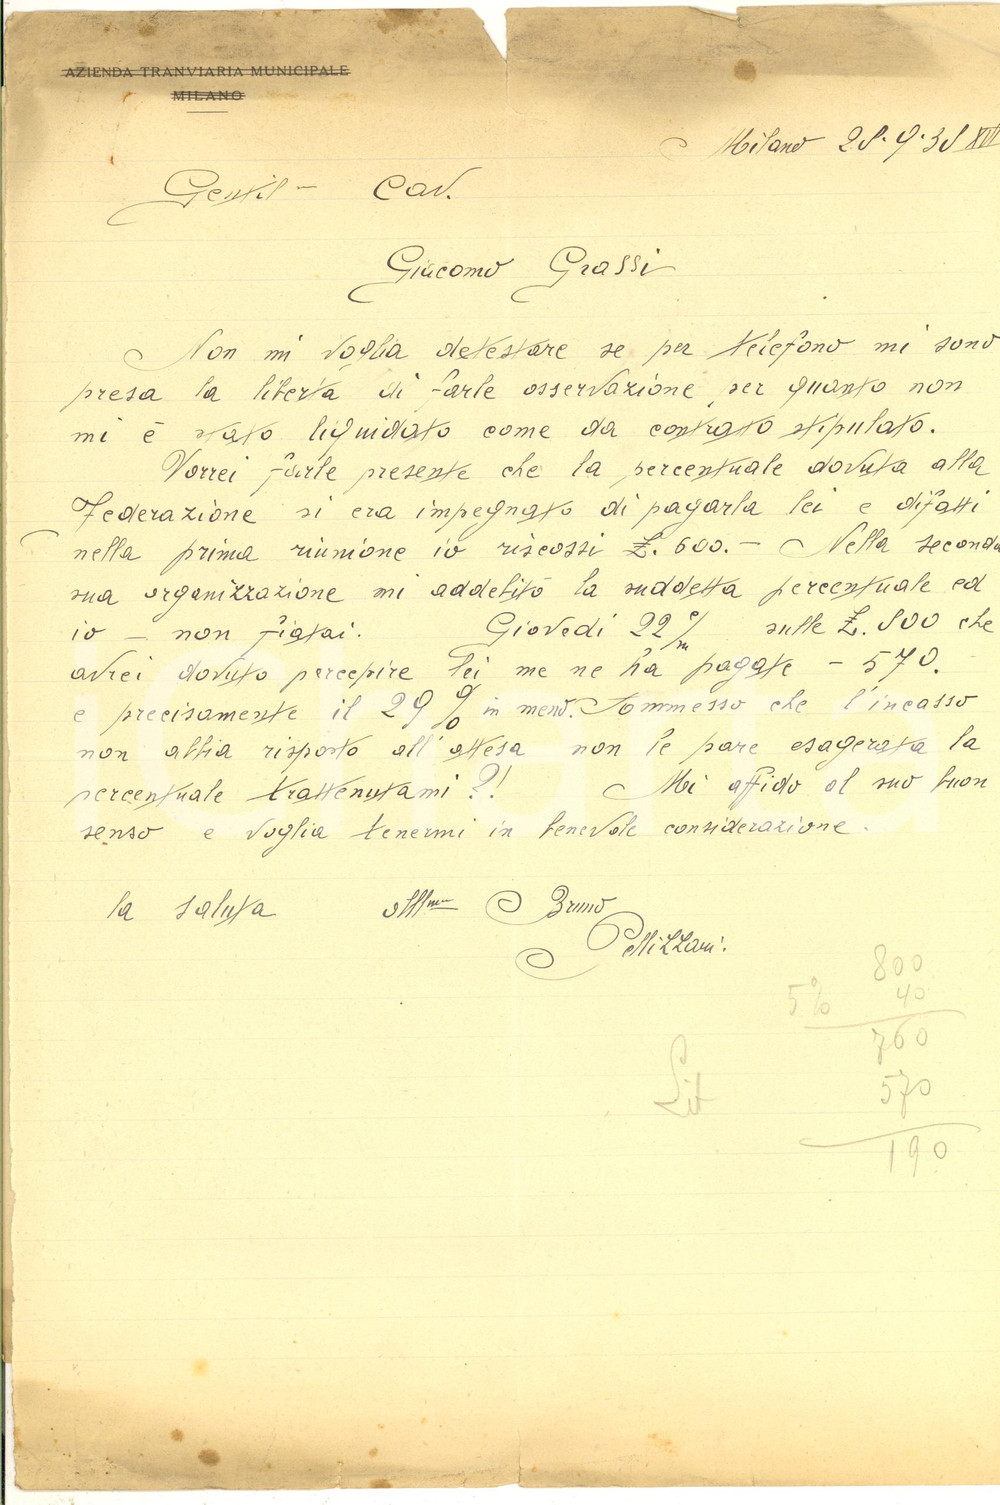 AZIENDA TRANVIARIA MUNICIPALE
MILANO
Milano 28.9.38 XVI
Gentil- Cav.
Giacomo Grassi
Non mi voglia detestare se per telefono mi sono
presa la libertà di farle osservazione per quanto non
mi è stato liquidato come da contrato stipulato.
Vorrei farle presente che la percentuale dovuta alla
Federazione si era impegnato di pagarla lei e difatti
nella prima riunione io riscossi £. 600.- Nella seconda
sua organizzazione mi addebitò la suddetta percentuale ed
io - non fiatai. Giovedì 22 c/m sulle £. 800 che
avrei dovuto percepire lei me ne ha pagate - 570.
e precisamente il 29% in meno. Sommesso che l'incasso
non abbia risposto all'attesa non le pare esagerata la
percentuale trattenutami?! Mi affido al suo buon
senso e voglia tenermi in benevole considerazione.
la saluta obblmo Bruno
Pellizzari.
800
5% 40
760
Lit 570
190